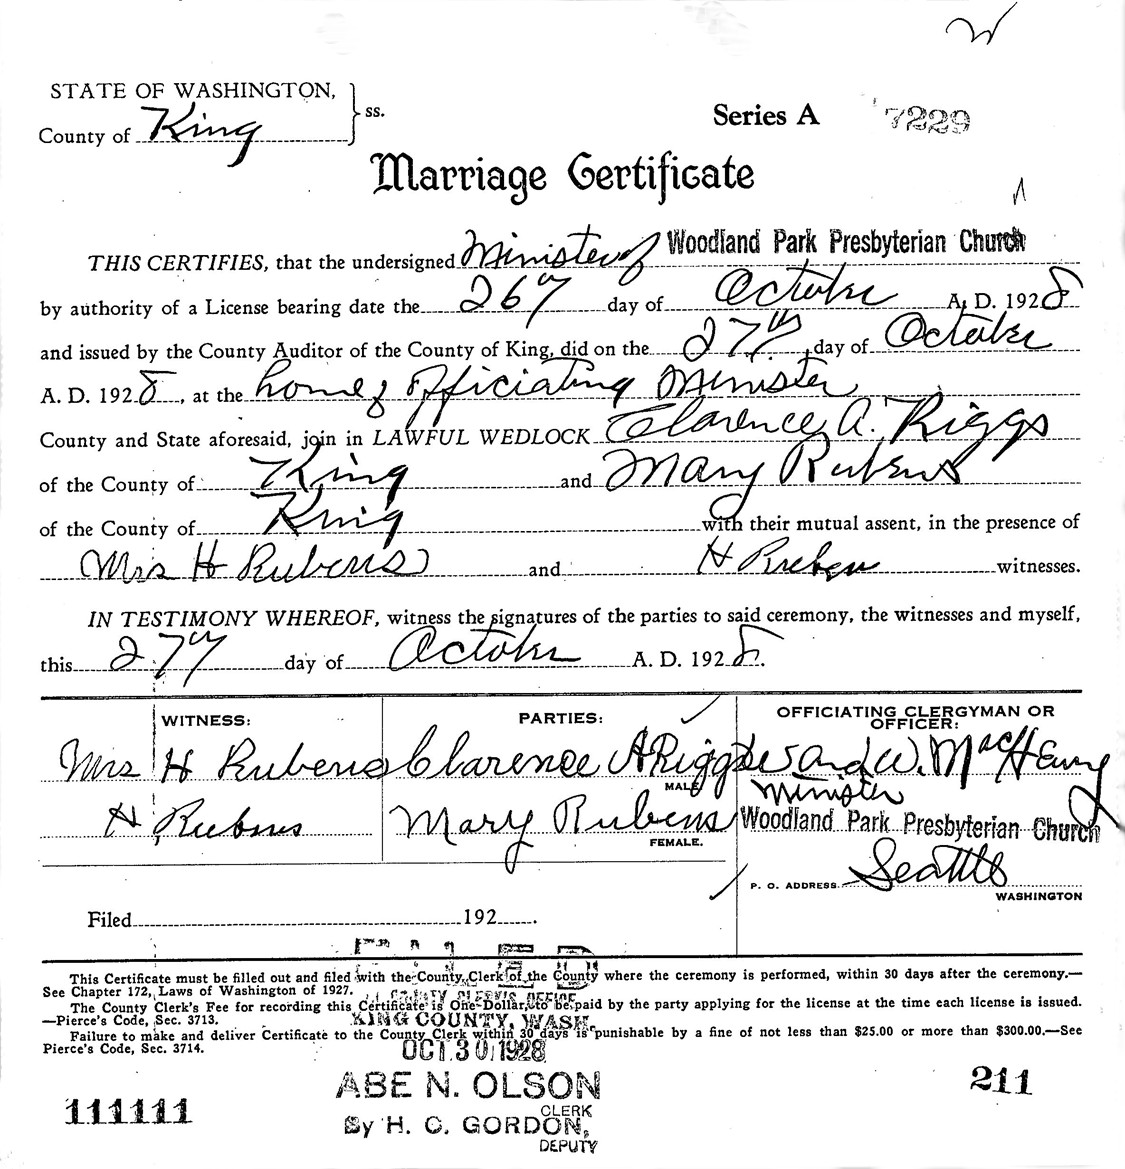 STATE OF WASHINGTON,
County of King ss.
Series A 7229
Marriage Certificate
THIS CERTIFIES, that the undersigned Minister of Woodland Park Presbyterian Church
by authority of a License bearing date the 26th day of October A. D. 1928
and issued by the County Auditor of the County of King, did on the 27th day of October
A. D. 1928, at the home of officiating Minister
County and State aforesaid, join in LAWFUL WEDLOCK Clarence A. Riggs
of the County of King and Mary Rubens
of the County of King with their mutual assent, in the presence of
Mrs H Rubens and H Rubens witnesses.
IN TESTIMONY WHEREOF, witness the signatures of the parties to said ceremony, the witnesses and myself,
this 27th day of October A. D. 1928.
WITNESS: PARTIES: OFFICIATING CLERGYMAN OR OFFICER:
Mrs H Rubens Clarence A Riggs W. MacHenry
MALE. Minister
H Rubens Mary Rubens Woodland Park Presbyterian Church
FEMALE.
Seattle
P. O. ADDRESS.
WASHINGTON
Filed 192 .
FILED
This Certificate must be filled out and filed with the County Clerk of the County where the ceremony is performed, within 30 days after the ceremony.—
See Chapter 172, Laws of Washington of 1927.
COUNTY CLERK'S OFFICE
The County Clerk's Fee for recording this Certificate is One Dollar, to be paid by the party applying for the license at the time each license is issued.
—Pierce's Code, Sec. 3713.
KING COUNTY, WASH.
Failure to make and deliver Certificate to the County Clerk within 30 days is punishable by a fine of not less than $25.00 or more than $300.00.—See
Pierce's Code, Sec. 3714.
OCT 30 1928
ABE N. OLSON
CLERK
By H. C. GORDON,
DEPUTY
111111
211